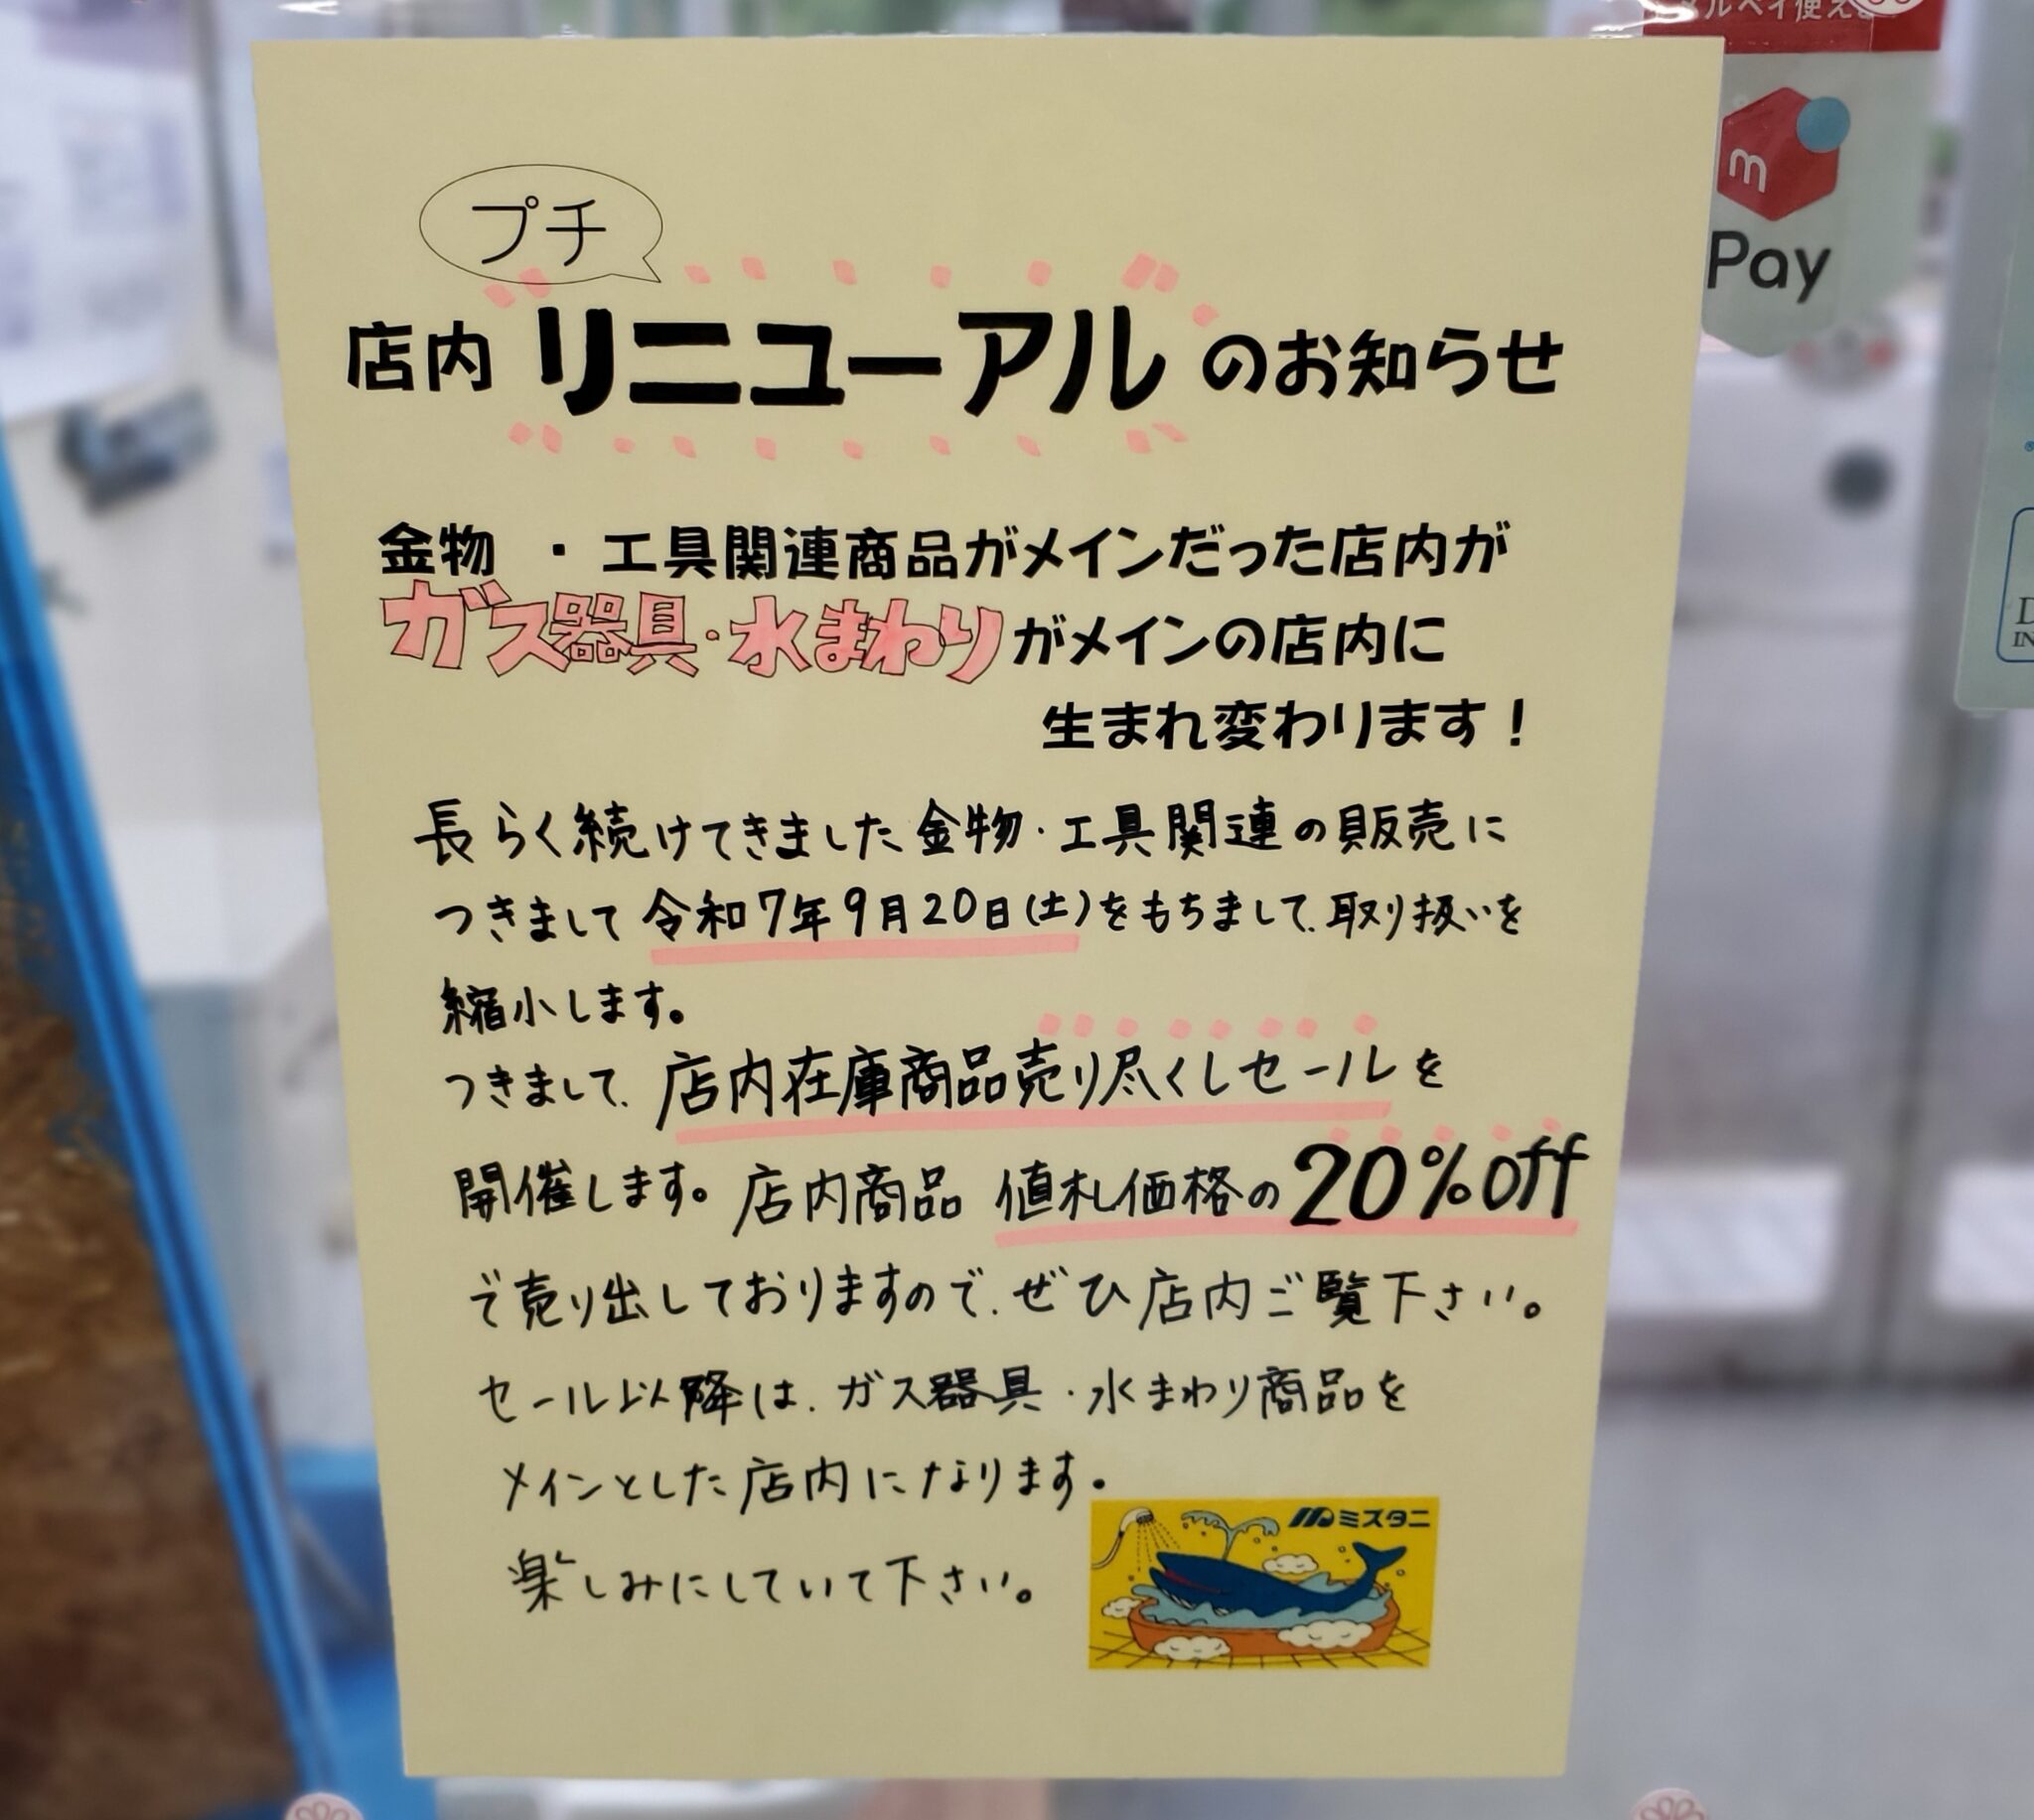 プチ
店内 リニューアル のお知らせ
金物 ・工具関連商品がメインだった店内が
ガス器具・水まわりがメインの店内に
生まれ変わります！
長らく続けてきました金物・工具関連の販売に
つきまして令和7年9月20日(土)をもちまして、取り扱いを
縮小します。
つきまして、店内在庫商品売り尽くしセールを
開催します。店内商品 値札価格の20%off
で売り出しておりますので、ぜひ店内ご覧下さい。
セール以降は、ガス器具・水まわり商品を
メインとした店内になります。
楽しみにしていて下さい。
ミズタニ
メルペイ使えま
m
Pay